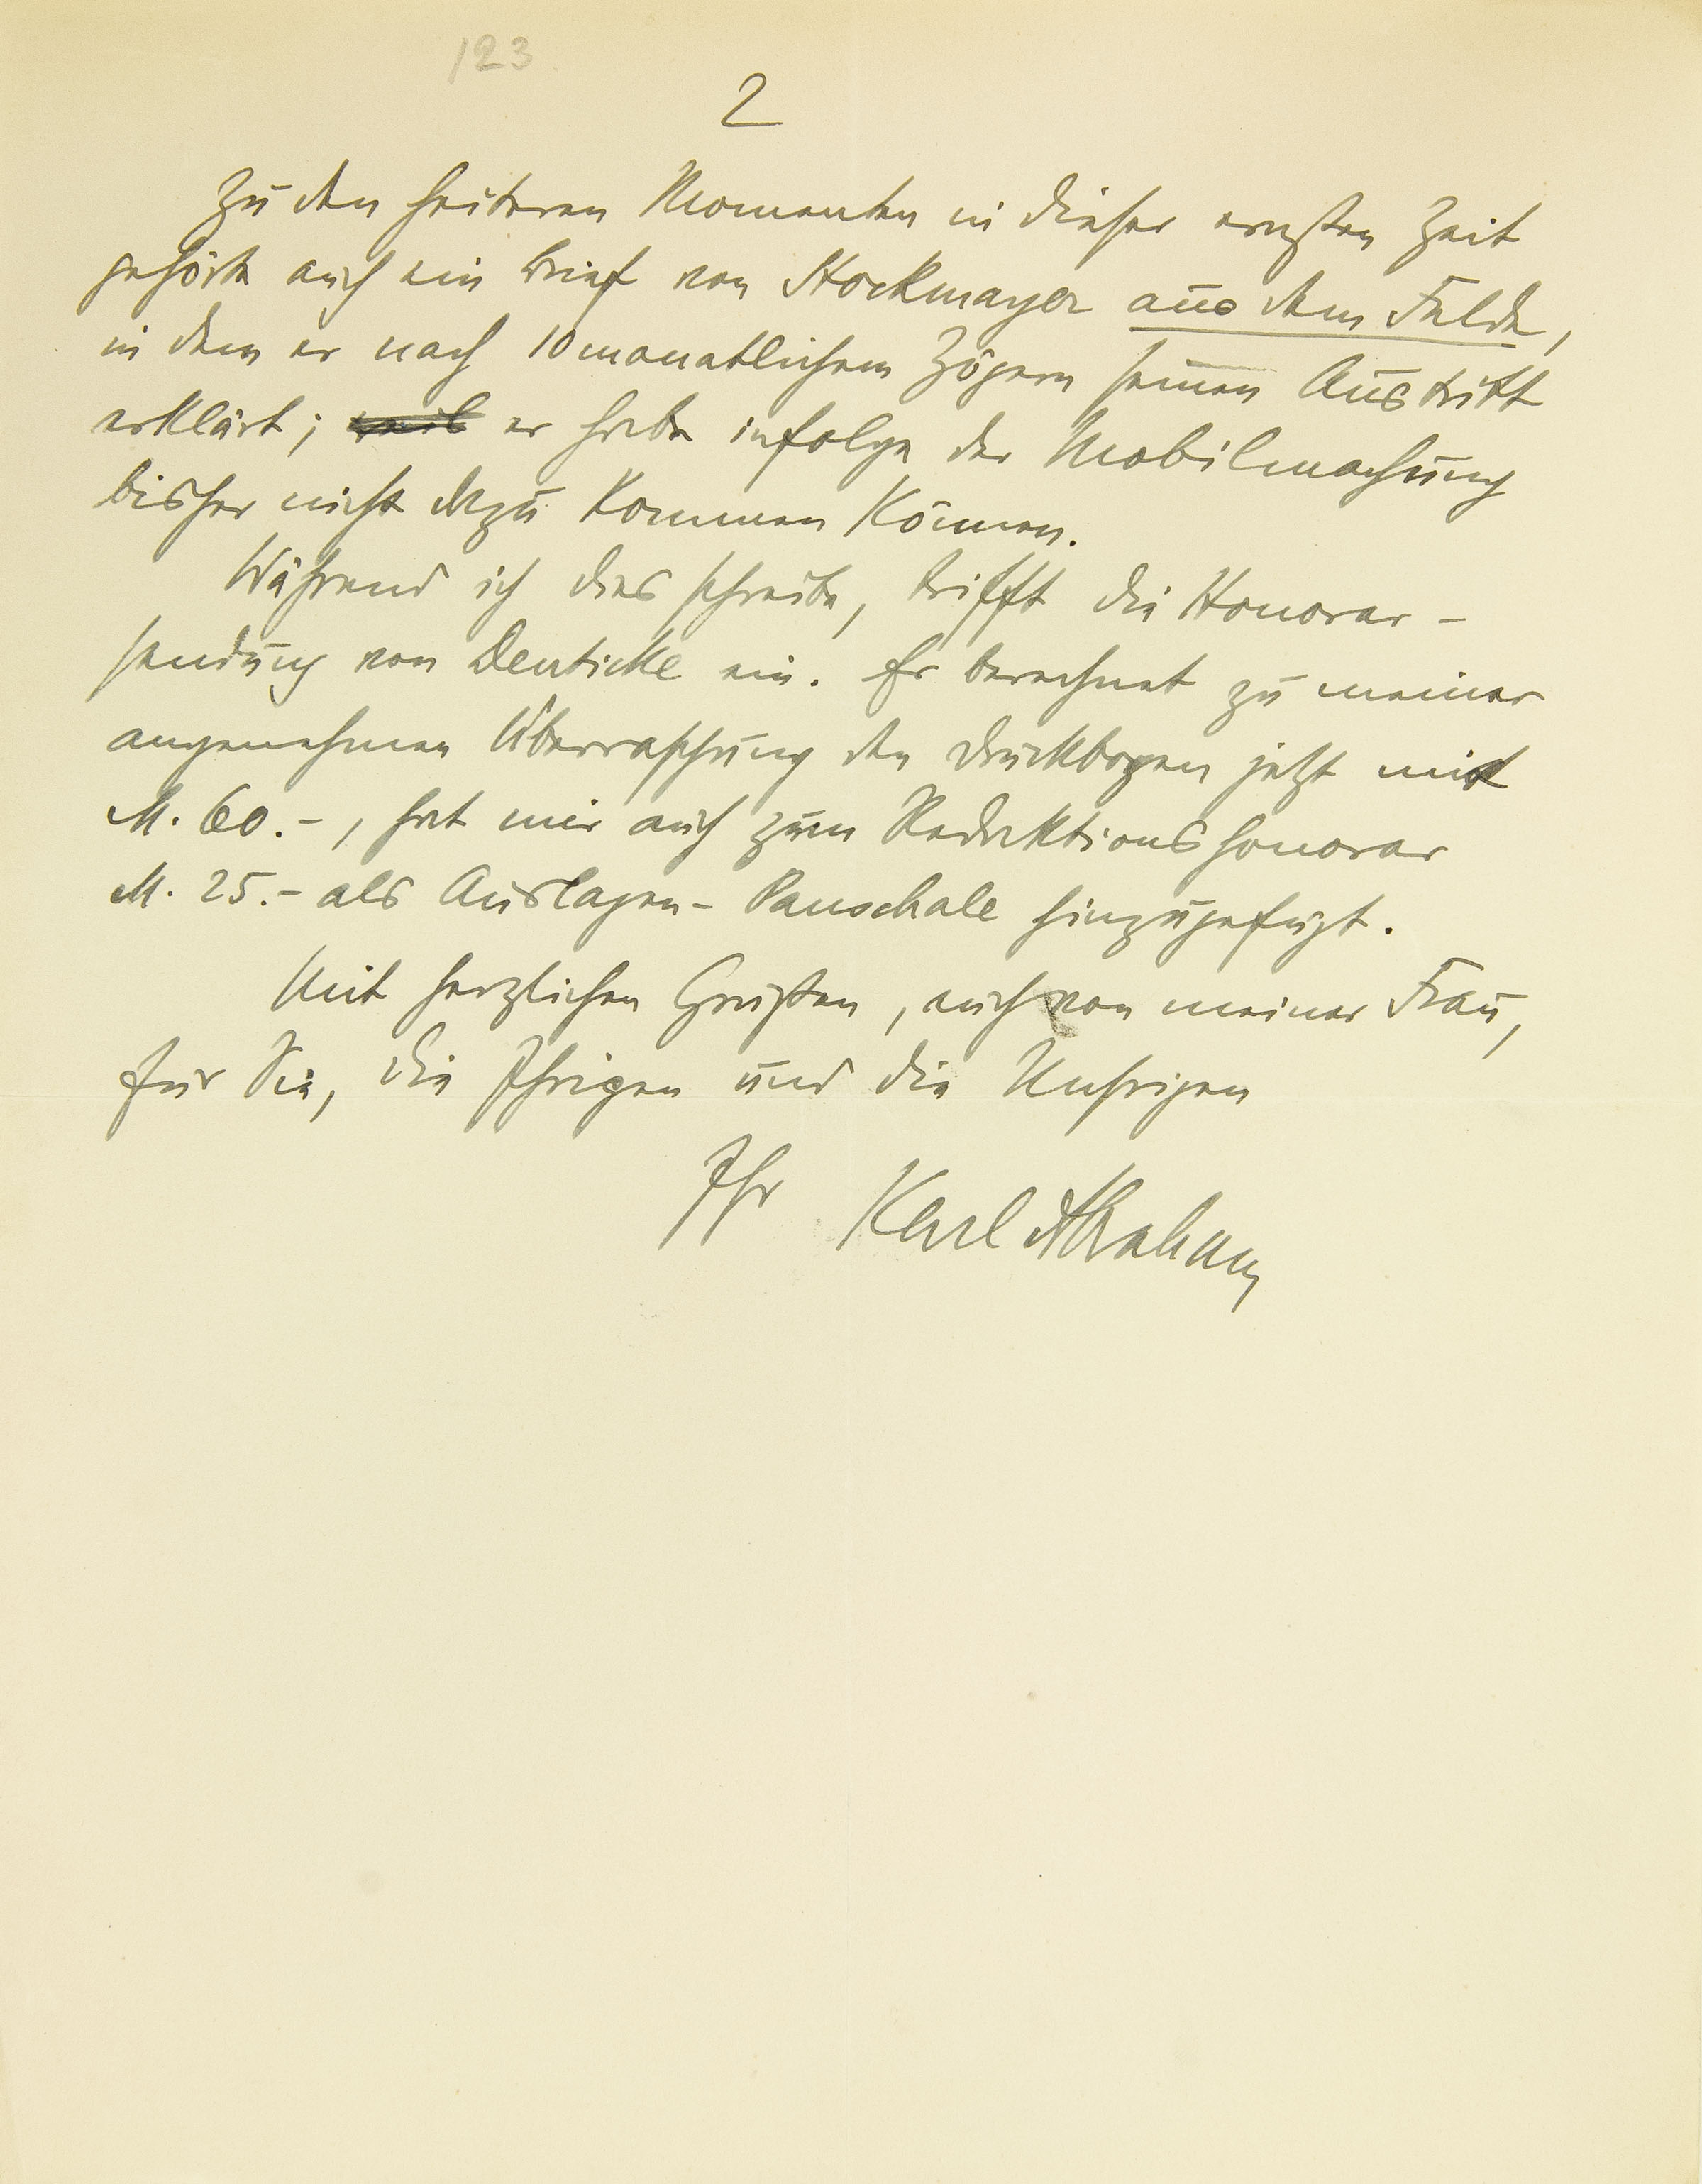 123
2
Zu den heiteren Momenten in dieser ernsten Zeit
gehörte auch ein Brief von Stockmayer aus dem Felde,
in dem er nach 10 monatlichem Zögern seinen Austritt
erklärt; weil er habe infolge der Mobilmachung
bisher nicht dazu kommen können.
Während ich dies schreibe, trifft die Honorar-
sendung von Deuticke ein. Er berechnet zu meiner
angenehmen Überraschung den Druckbogen jetzt mit
M. 60.-, hat mir auch zum Redaktionshonorar
M. 25.- als Auslagen-Pauschale hinzugefügt.
Mit herzlichen Grüßen, auch von meiner Frau,
für Sie, die Ihrigen und die Unsrigen
Ihr Karl Abraham